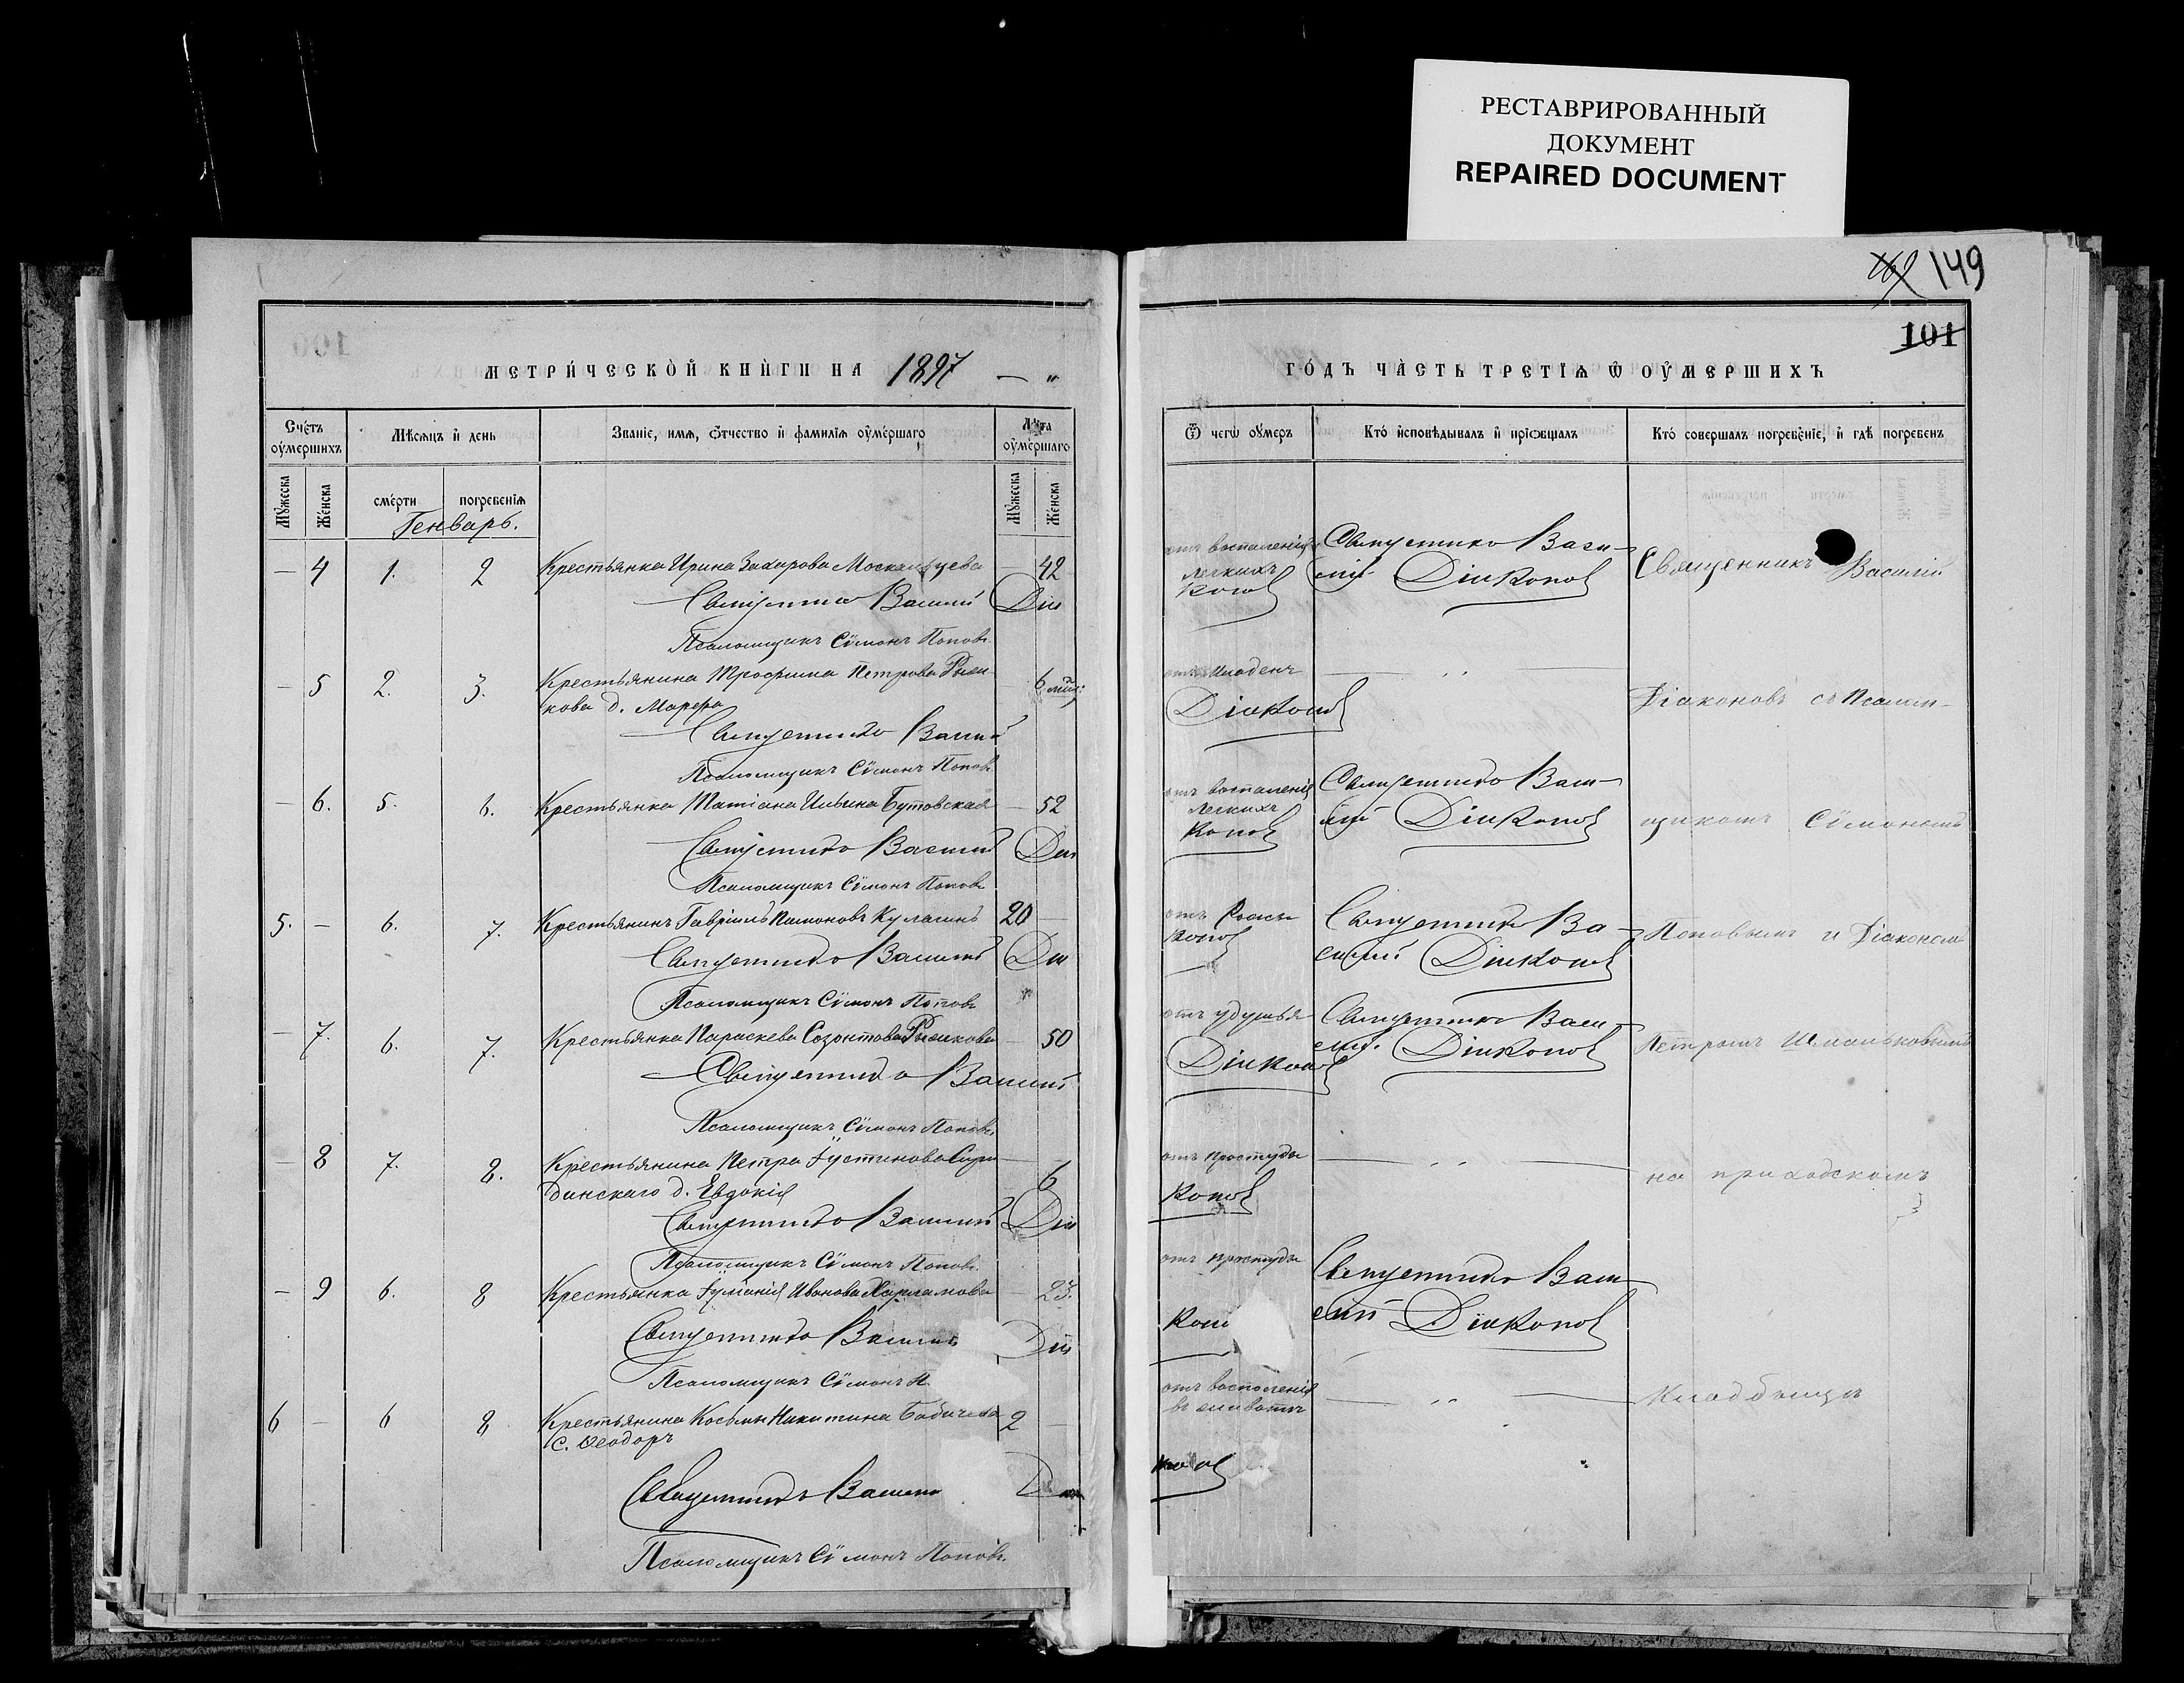 РЕСТАВРИРОВАННЫЙ
ДОКУМЕНТ
REPAIRED DOCUMENT
149
101
МЕТРИ́ЧЕСКОЙ КНИ́ГИ НА 1897
ГО́ДЪ ЧА́СТЬ ТРЕТІѦ Ѿ ОУ҆МЕРШИХЪ
Сче́тъ оу҆мершихъ
Мѣсѧцъ и҆ день
Званіе, имѧ, ѻтчество и҆ фамиліѧ оу҆ме́ршаго
Лѣта оу҆ме́ршаго
Мꙋжеска
Же́нска
сме́рти
погребеніѧ
Мꙋжеска
Же́нска
Ѿ чегѡ оу҆меръ
Кто́ и҆сповѣ́дывалъ и҆ прїѻбщалъ
Кто́ совершалъ погребе́ніе, и҆ гдѣ̀ погребенъ
Генварь.
— 4 1. 2 Крестьянка Ирина Захарова — 42
отъ воспаленія легкихъ
Священникъ Василій Діаконовъ
Священникъ Василій
Священникъ Василій Діаконовъ
Псаломщикъ Сѵмонъ Поповъ.
— 5 2. 3. Крестьянина Трофима Петрова
кова д. Марфа
6 мѣс.
отъ младенч
— „ —
Діаконовъ съ Псалом-
Священникъ Василій Діаконовъ
Псаломщикъ Сѵмонъ Поповъ
— 6. 5. 6. Крестьянка Татіана Ильина Бутовская — 52
отъ воспаленія легкихъ
Священникъ Василій Діаконовъ
щикомъ Сѵмономъ
Священникъ Василій Діаконовъ
Псаломщикъ Сѵмонъ Поповъ
5. — 6. 7. Крестьянинъ Гавріилъ 20 —
отъ
Священникъ Василій Діаконовъ
Поповымъ и Діакономъ
Священникъ Василій Діаконовъ
Псаломщикъ Сѵмонъ Поповъ
— 7. 6. 7. Крестьянка Параскева Созонтова — 50
отъ удушья
Священникъ Василій Діаконовъ
Петромъ
Священникъ Василій Діаконовъ
Псаломщикъ Сѵмонъ Поповъ
— 8 7. 8. Крестьянина Петра Іустинова
динскаго д. Евдокія
— 6
отъ простуды
— „ —
на приходскомъ
Священникъ Василій Діаконовъ
Псаломщикъ Сѵмонъ Поповъ.
— 9 6. 8 Крестьянка Іуліанія Иванова Харламова — 23.
отъ простуды
Священникъ Василій Діаконовъ
Священникъ Василій
Псаломщикъ Сѵмонъ П
6 — 6 8 Крестьянина Косьмы Никитина Бабичева
с. Ѳеодоръ
2 —
отъ воспаленія
въ животѣ
— „ —
кладбищѣ
Священникъ Василій
Псаломщикъ Сѵмонъ Поповъ.